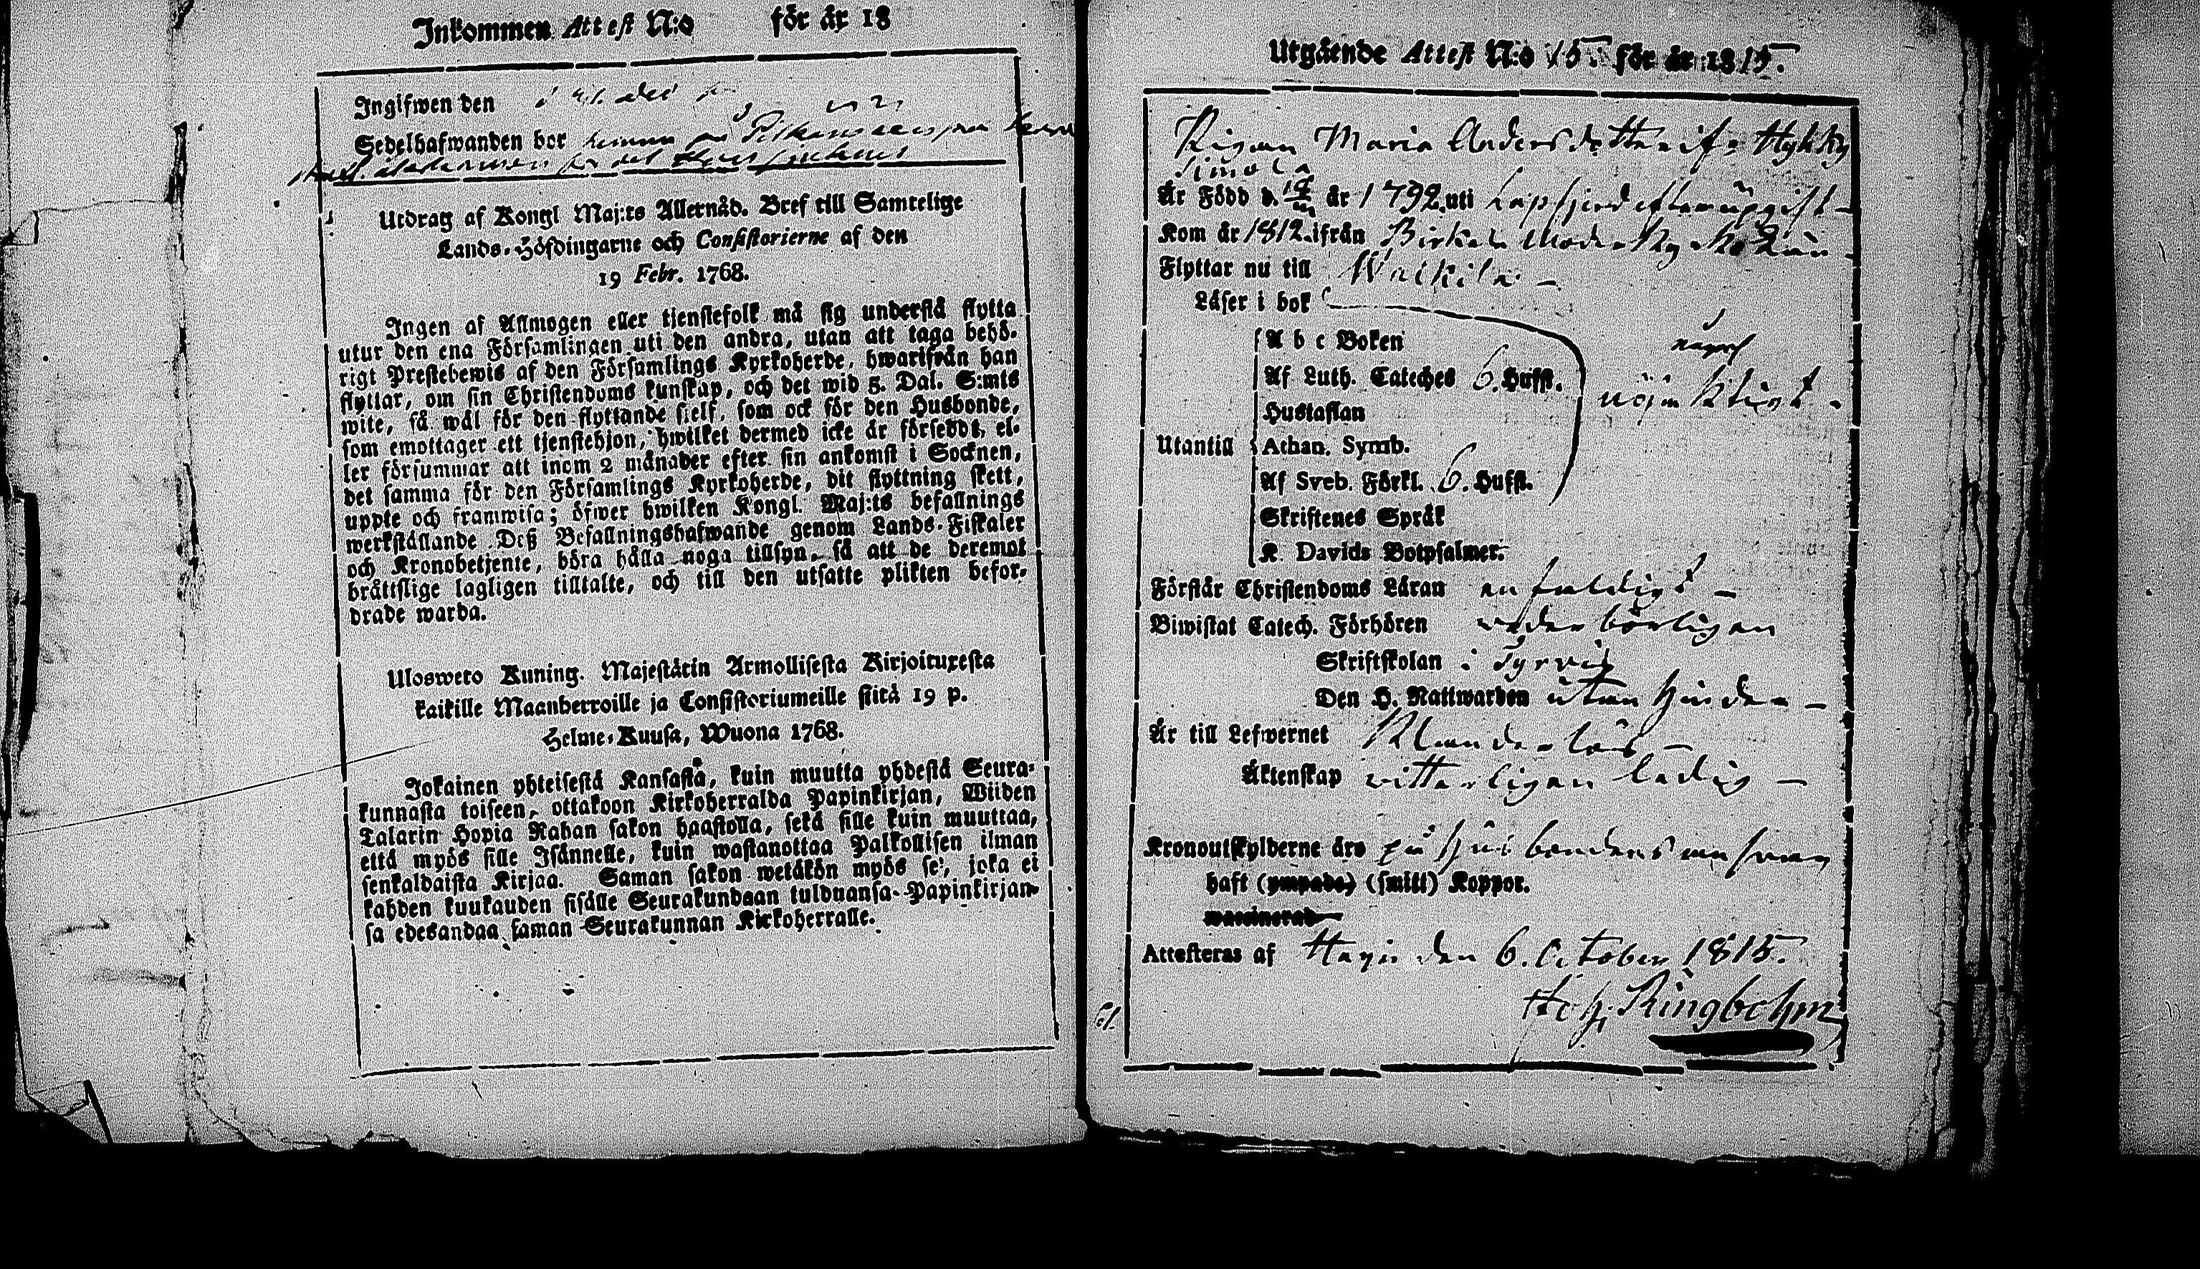 Inkommen Attest N:o för år 18
Ingifwen den
Sedelhafwanden bor
Utdrag af Kongl Maj:ts Allernåd. Bref till Samtelige
Lands-Höfdingarne och Consistorierne af den
19 Febr. 1768.
Ingen af Allmogen eller tjenstefolk må sig understå flytta
utur den ena Församlingen uti den andra, utan att taga behö-
rigt Prestebewis af den Församlings Kyrkoherde, hwarifrån han
flyttar, om sin Christendoms kunskap, och det wid 5. Dal. S:mts
wite, så wäl för den flyttande sjelf, som ock för den Husbonde,
som emottager ett tjenstehjon, hwilket dermed icke är försedt, el-
ler försummar att inom 2 månader efter sin ankomst i Socknen,
det samma för den Församlings Kyrkoherde, dit flyttning skett,
uppte och framwisa; öfwer hwilken Kongl. Maj:ts befallnings
werkställande Deß Befallningshafwande genom Lands-Fiskaler
och Kronobetjente, böra hålla noga tillsyn, så att de deremot
bråttslige lagligen tilltalte, och till den utsatte plikten befor-
drade warda.
Ulosweto Kuning. Majestätin Armollisesta Kirjoituxesta
kaikille Maanherroille ja Consistoriumeille siitä 19 p.
Helme-Kuusa, Wuona 1768.
Jokainen yhteisestä Kansasta, kuin muutta yhdestä Seura-
kunnasta toiseen, ottakoon Kirkoherralda Papinkirjan, Wiiden
Talarin Hopia Rahan sakon haastolla, sekä sille kuin muuttaa,
että myös sille Isännelle, kuin wastanottaa Palkollisen ilman
senkaldaista Kirjaa. Saman sakon wetäkön myös se, joka ei
kahden kuukauden sisälle Seurakundaan tulduansa Papinkirjan-
sa edesandaa saman Seurakunnan Kirkoherralle.
Utgående Attest N:o 15. för år 1815.
Pigan Maria Andersdotter ifr. Hykky
Simola
Är Född d. år 1792 uti
Kom år 1812 ifrån Birkala
Flyttar nu till Walkila
Läser i bok
A b c Boken
Af Luth. Cateches 6. Hufst.
Hustaflan
Utantill Athan. Symb.
Af Sveb. Förkl. 6. Hufst.
Skriftenes Språk
K. Davids Botpsalmer.
Förstår Christendoms Läran enfaldigt
Biwistat Catech. Förhören wederbörligen
Skriftskolan i Tyrvis
Den H. Nattwarden utan hinder
Är till Lefwernet Klanderlös
Äktenskap witterligen ledig
Kronoutskylderne äro på husbondens answar
haft (ympade) (smitt) Koppor.
waccinerad
Attesteras af Harju den 6. October 1815.
Joh. Ringbohm